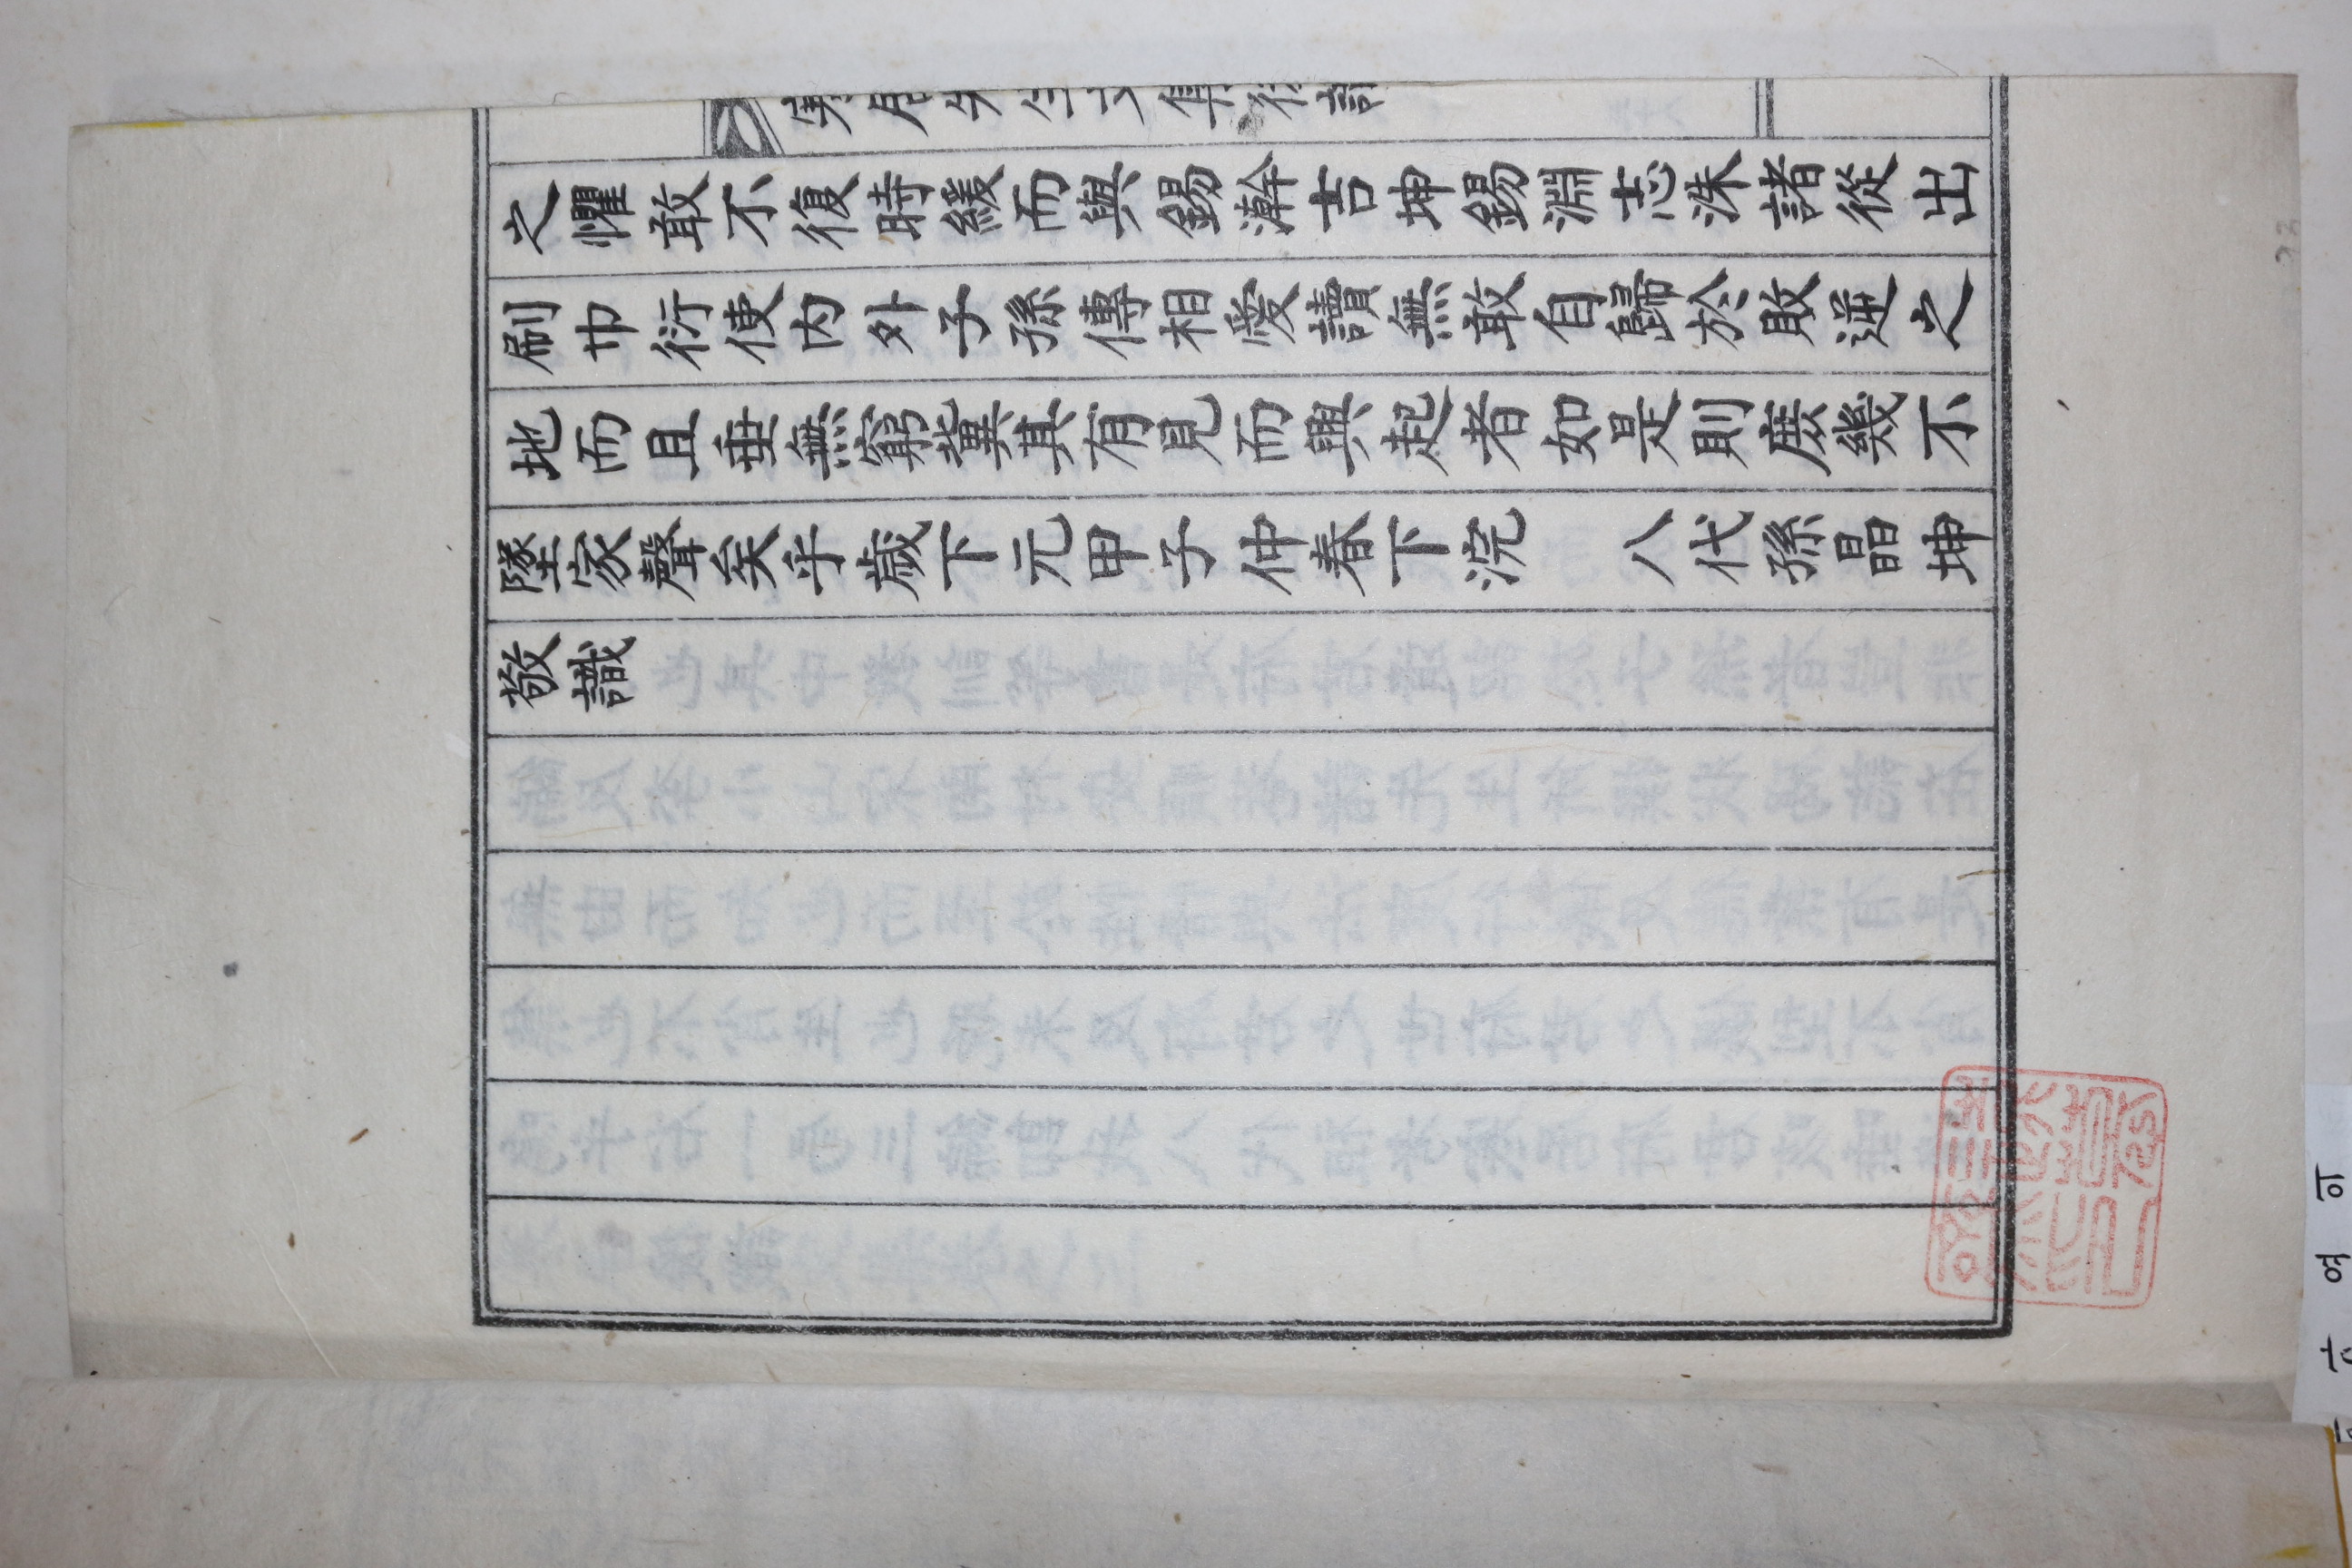 之懼敢不復時緩而與錫澣吉坤錫淵志洙諸從出
刷巾衍使内外子孫傳相愛讀無敢自歸於敗逆之
地而且垂無窮冀其有見而興起者如是則庶幾不
墜家聲矣乎歲下元甲子仲春下浣 八代孫晶坤
敬識